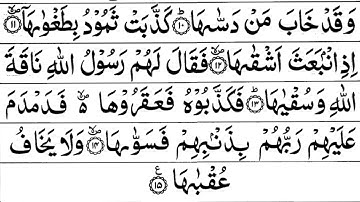 وَقَدْ خَابَ مَنْ دَسّٰىهَا ۝١٠ كَذَّبَتْ ثَمُوْدُ بِطَغْوٰىهَاۤ ۝١١
اِذِ انْۢبَعَثَ اَشْقٰىهَا ۝١٢ فَقَالَ لَهُمْ رَسُوْلُ اللّٰهِ نَاقَةَ
اللّٰهِ وَسُقْيٰهَا ۝١٣ فَكَذَّبُوْهُ فَعَقَرُوْهَا ۵ فَدَمْدَمَ
عَلَيْهِمْ رَبُّهُمْ بِذَنْۢبِهِمْ فَسَوّٰىهَا ۝١٤ وَلَا يَخَافُ
عُقْبٰهَا ۝١٥ ع